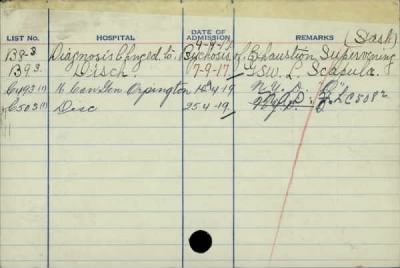 LIST No. HOSPITAL DATE OF ADMISSION REMARKS (Sask)
B8-3 Diagnosis Changed to Psychosis of Exhaustion Supervening
B93. Disch. 7-9-17 GSW. L. Scapula.
C493(1) 16 Can Gen Orpington 16-4-19 N.Y.D.
C503(1) Disc 25-4-19